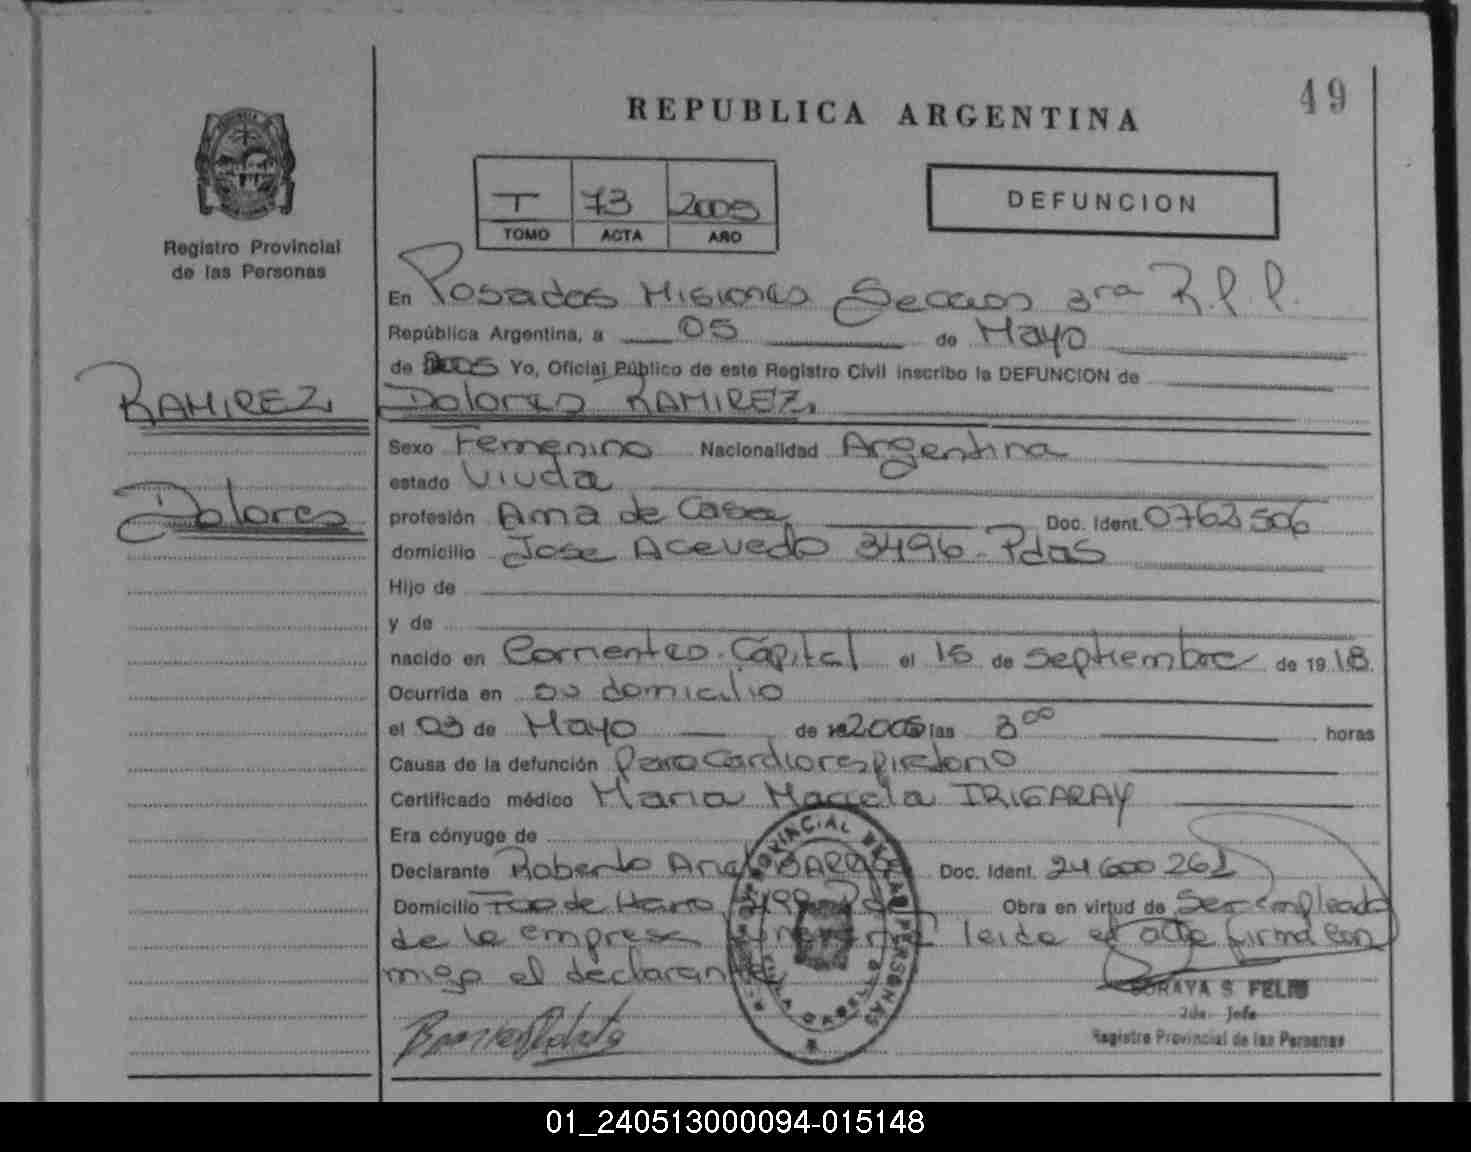 49
REPUBLICA ARGENTINA
T 73 2005
TOMO ACTA AÑO
DEFUNCION
Registro Provincial
de las Personas
RAMIREZ,
Dolores
En Posadas Misiones Seccion 3ra R.P.P.
República Argentina, a 05 de Mayo
de 2005 Yo, Oficial Público de este Registro Civil inscribo la DEFUNCION de
Dolores RAMIREZ,
Sexo Femenino Nacionalidad Argentina
estado Viuda
profesión Ama de Casa Doc. Ident.
domicilio Jose Acevedo 3496 - Pdas
Hijo de
y de
nacido en Corrientes - Capital el 15 de septiembre de 1918.
Ocurrida en su domicilio
el 03 de Mayo de 2005 las 300 horas
Causa de la defunción Paro Cardiorespiratorio
Certificado médico Maria Marcela IRIGARAY
Era cónyuge de
Declarante Roberto Doc. Ident. 24 600 261
Domicilio de Obra en virtud de Ser empleado
de la empresa leida el acta firma con
migo el declarante
PROVINCIAL DE LAS PERSONAS
SORAYA S. FELIU
2da. Jefe
Registro Provincial de las Personas
01_240513000094-015148